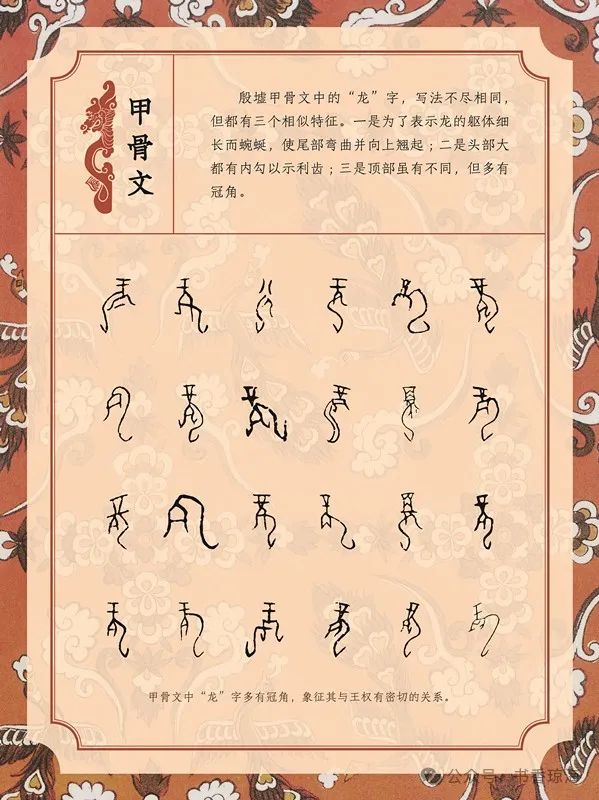 甲骨文
殷墟甲骨文中的“龙”字，写法不尽相同，
但都有三个相似特征。一是为了表示龙的躯体细
长而蜿蜒，使尾部弯曲并向上翘起；二是头部大
都有内勾以示利齿；三是顶部虽有不同，但多有
冠角。
甲骨文中“龙”字多有冠角，象征其与王权有密切的关系。
公众号·书香琼海